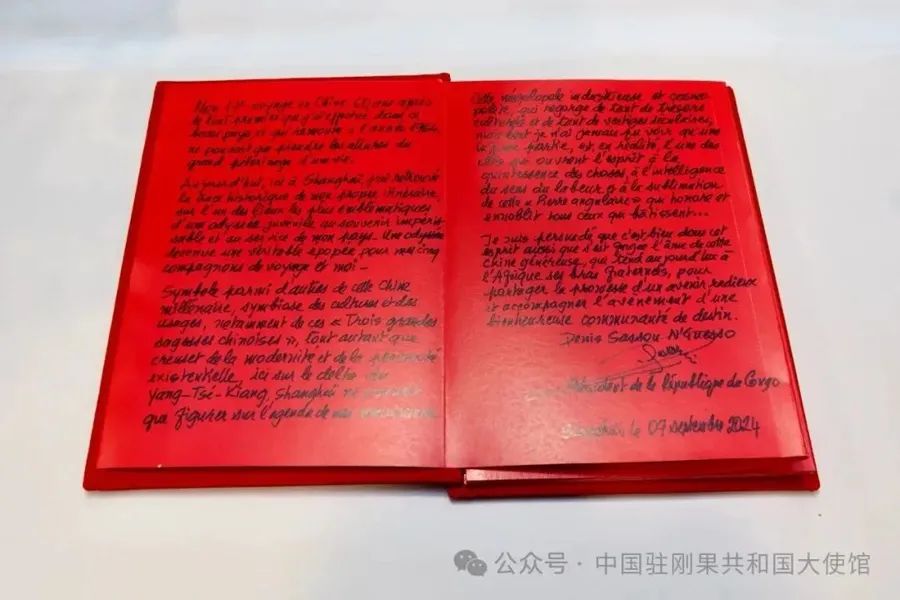 Mon 17e voyage en Chine 60 ans après
le tout premier qui j'ai effectué dans ce
beau pays, et qui remonte à l'année 1964,
ne pouvait que prendre les allures du
grand pèlerinage d'une vie.
Aujourd'hui, ici à Shanghaï, j'ai retrouvé
la trace historique de mon propre itinéraire,
sur l'un des lieux les plus emblématiques
d'une odyssée juvénile au souvenir impéris-
sable et au service de mon pays. Une odyssée
devenue une véritable épopée pour mes cinq
compagnons de voyage et moi -
Symbole parmi d'autres de cette Chine
millénaire, symbiose des cultures et des
usages, notamment de ces « Trois grandes
sagesses chinoises », tout autant que
creuset de la modernité et de la
existentielle, ici sur le delta du
Yang-Tse-Kiang, Shanghaï ne pouvait
que figurer sur l'agenda de mes
Cette mégalopole industrieuse et cosmo-
polite, qui regorge de tant de trésors
culturels et de tant de vestiges séculaires,
mais dont je n'ai jamais pu voir qu'une
partie, est, en réalité, l'une des
clés qui ouvrent l'esprit à la
quintessence des choses, à l'intelligence
du sens du labeur et à la sublimation
de cette « Pierre angulaire » qui honore et
ennoblit tous ceux qui bâtissent...
Je suis persuadé que c'est bien dans cet
esprit aussi que s'est forgée l'âme de cette
Chine généreuse, qui tend aujourd'hui à
l'Afrique ses bras fraternels, pour
partager la promesse d'un avenir radieux
et accompagner l'avènement d'une
bienheureuse communauté de destin.
Denis Sassou N'Guesso
Président de la République du Congo
Shanghaï le 07 septembre 2024
公众号 · 中国驻刚果共和国大使馆